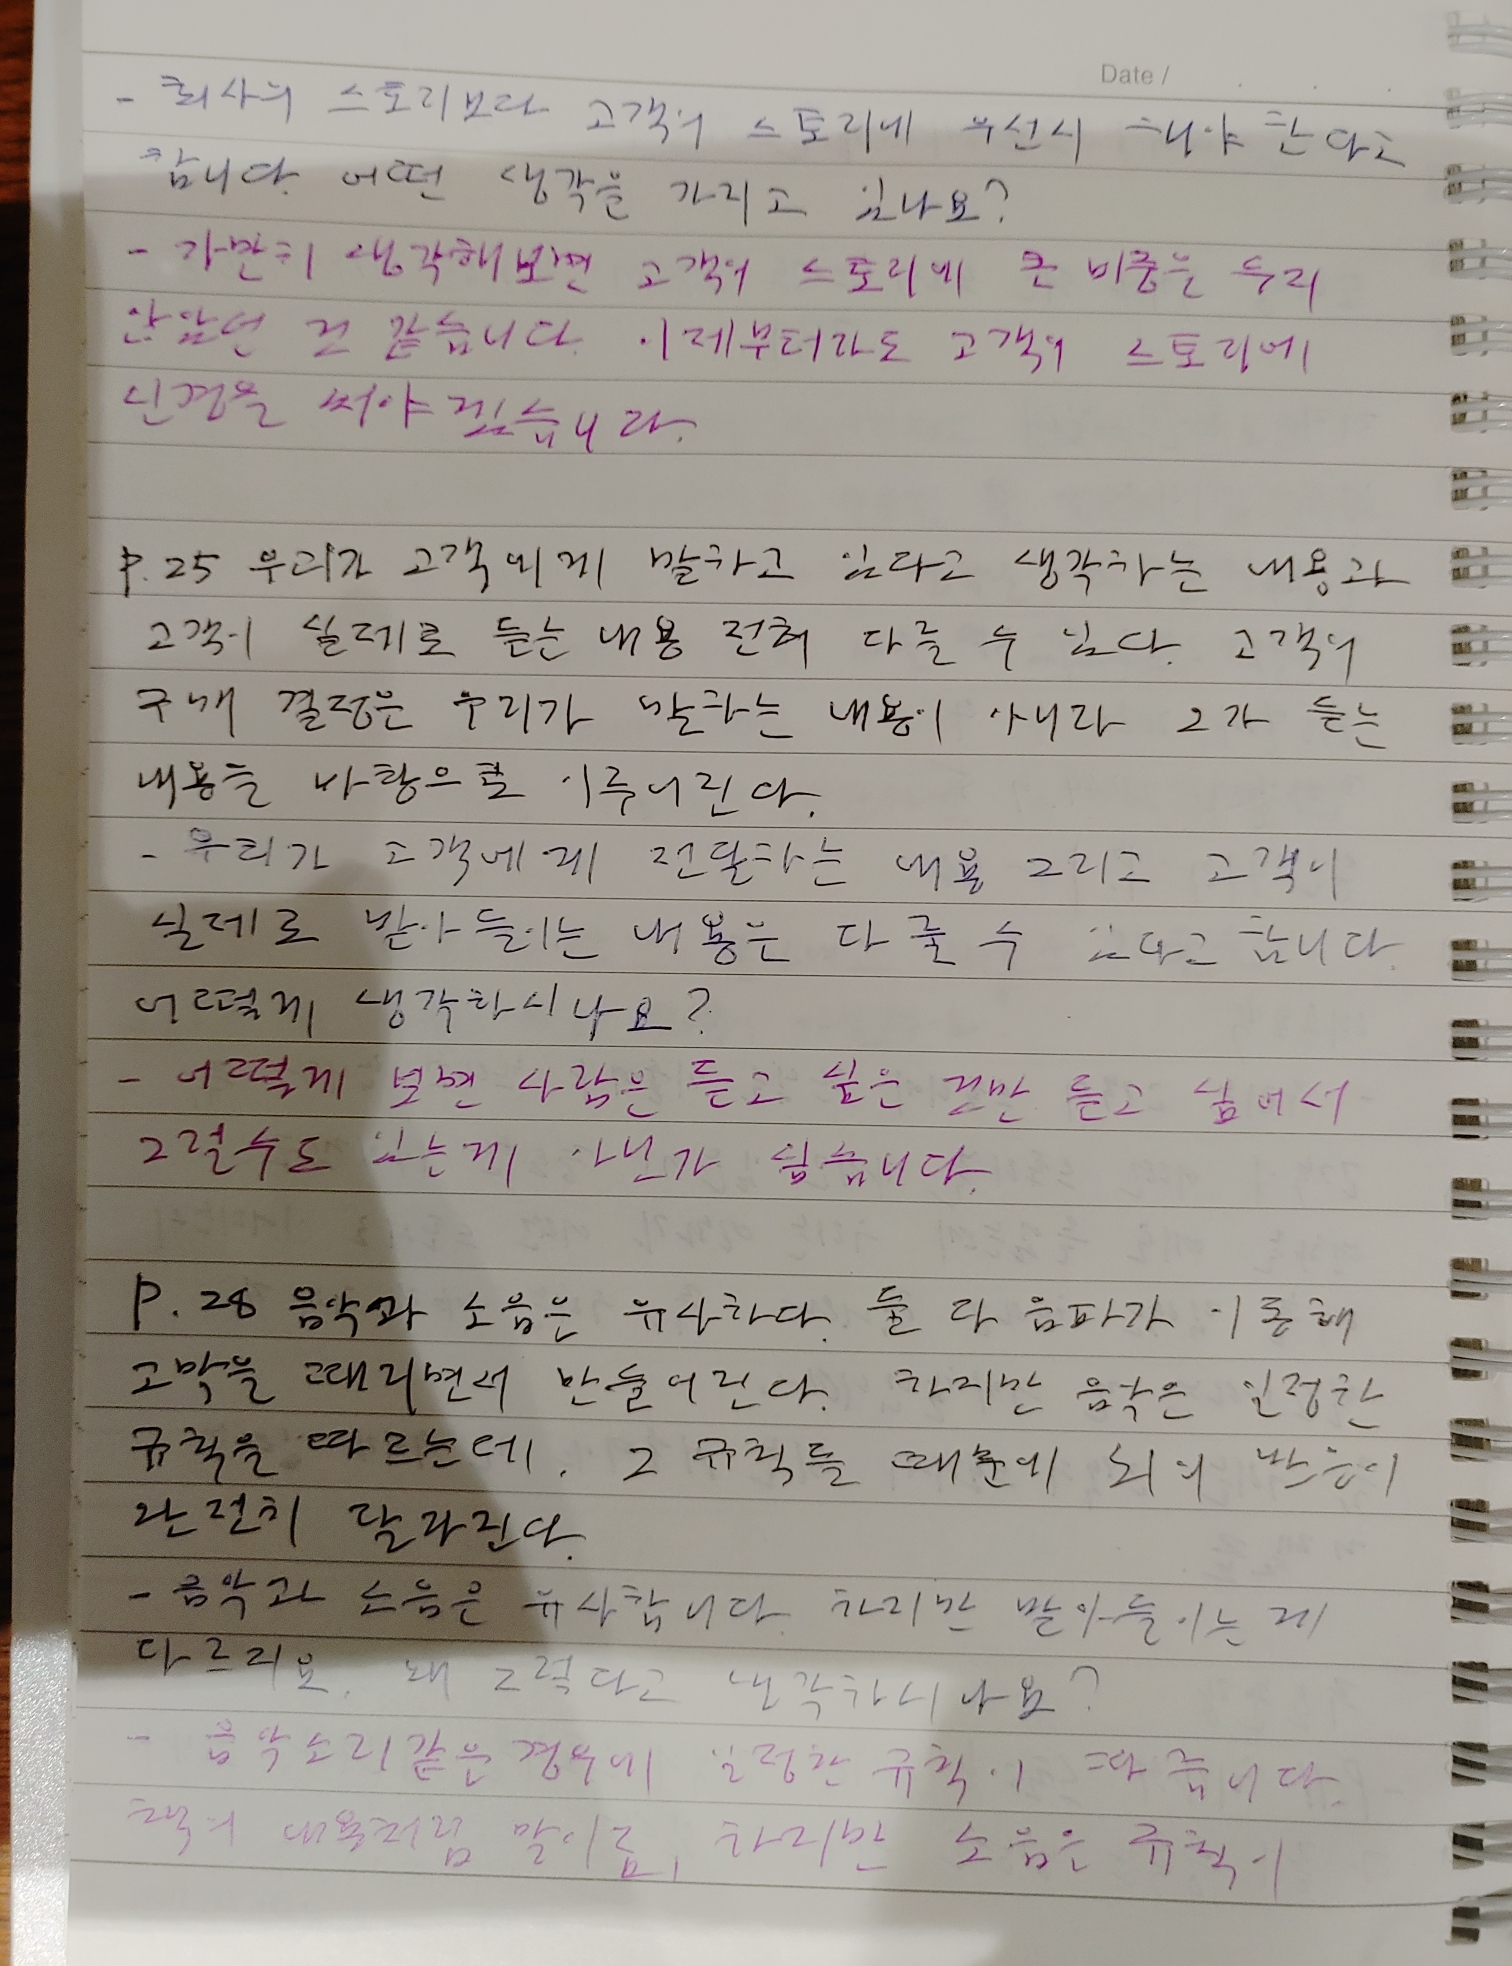 Date /
- 회사의 스토리보다 고객의 스토리에 우선시 해야 한다고
합니다. 어떤 생각을 가지고 있나요?
- 가만히 생각해보면 고객의 스토리에 큰 비중은 두지
않았던 것 같습니다. 이제부터라도 고객의 스토리에
신경을 써야겠습니다.
P.25 우리가 고객에게 말하고 있다고 생각하는 내용과
고객이 실제로 듣는 내용 전혀 다를 수 있다. 고객의
구매 결정은 우리가 말하는 내용이 아니라 그가 듣는
내용을 바탕으로 이루어진다.
- 우리가 고객에게 전달하는 내용 그리고 고객이
실제로 받아들이는 내용은 다를 수 있다고 합니다.
어떻게 생각하시나요?
- 어떻게 보면 사람은 듣고 싶은 것만 듣고 싶어서
그럴수도 있는게 아닌가 싶습니다.
P.28 음악과 소음은 유사하다. 둘 다 음파가 이동해
고막을 때리면서 만들어진다. 하지만 음악은 일정한
규칙을 따르는데, 그 규칙들 때문에 뇌의 반응이
완전히 달라진다.
- 음악과 소음은 유사합니다. 하지만 받아들이는 게
다르지요. 왜 그렇다고 생각하시나요?
- 음악소리같은 경우에 일정한 규칙이 따릅니다.
책의 내용처럼 말이죠. 하지만 소음은 규칙이